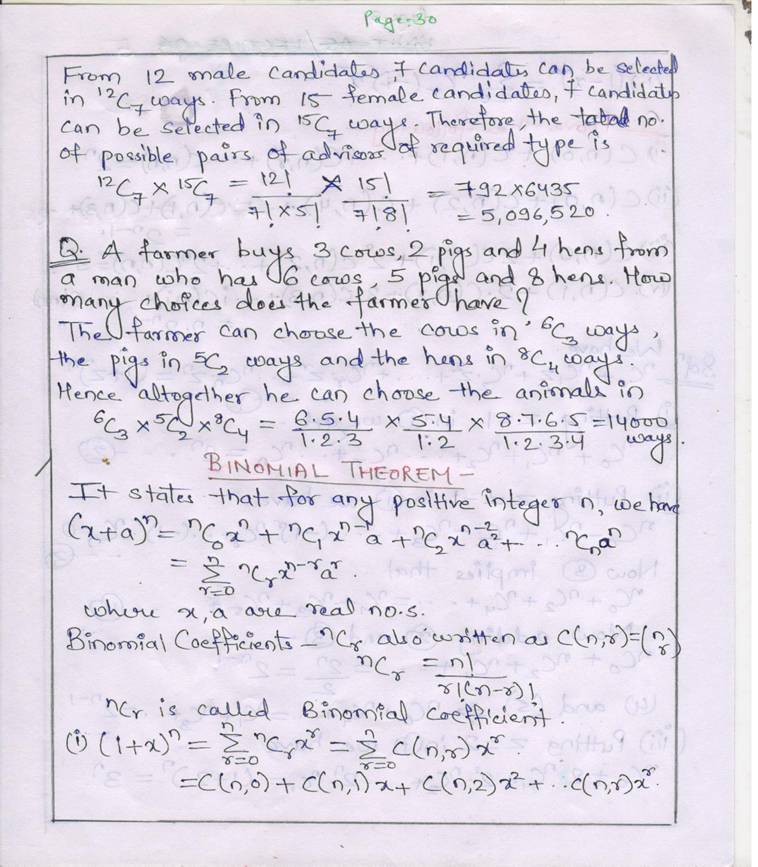 Page:30
From 12 male candidates, 7 candidates can be selected
in ¹²C₇ ways. From 15 female candidates, 7 candidates
can be selected in ¹⁵C₇ ways. Therefore, the total no.
of possible pairs of advisors of required type is
¹²C₇ × ¹⁵C₇ = 12!/(7! × 5!) × 15!/(7! 8!) = 792×6435
= 5,096,520.
Q. A farmer buys 3 cows, 2 pigs and 4 hens from
a man who has 6 cows, 5 pigs and 8 hens. How
many choices does the farmer have?
The farmer can choose the cows in ⁶C₃ ways,
the pigs in ⁵C₂ ways and the hens in ⁸C₄ ways.
Hence altogether he can choose the animals in
⁶C₃ × ⁵C₂ × ⁸C₄ = (6·5·4)/(1·2·3) × (5·4)/(1·2) × (8·7·6·5)/(1·2·3·4) = 14000 ways.
BINOMIAL THEOREM –
It states that for any positive integer n, we have
(x+a)ⁿ = ⁿC₀xⁿ + ⁿC₁xⁿ⁻¹a + ⁿC₂xⁿ⁻²a² + ... ⁿCₙaⁿ
= Σ_{r=0}^{n} ⁿCᵣxⁿ⁻ʳaʳ.
where x, a are real no.s.
Binomial Coefficients – ⁿCᵣ also written as C(n,r) = (n r)
ⁿCᵣ = n!/(r!(n-r)!)
ⁿCr is called Binomial Coefficient.
(i) (1+x)ⁿ = Σ_{r=0}^{n} ⁿCᵣxʳ = Σ_{r=0}^{n} C(n,r)xʳ
= C(n,0) + C(n,1)x + C(n,2)x² + ..C(n,r)xʳ.